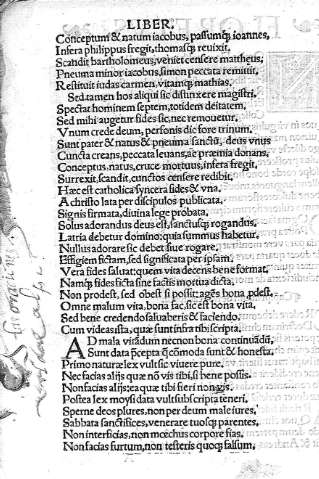 LIBER.
Conceptum & natum iacobus, passumq; ioannes,
Infera philippus fregit, thomasq; reuixit,
Scandit bartholomeus, veniet censere mattheus;
Pneuma minor iacobus, simon peccata remittit,
Restituit iudas carmen, vitamq; mathias.
Sed tamen hos aliqui sic distinxere magistri,
Spectat hominem septem, totidem deitatem.
Sed mihi augetur fides sic, nec remouetur.
Vnum crede deum, personis dic fore trinum.
Sunt pater & natus & pneuma sanctū, deus vnus
Cuncta creans, peccata leuans, ac præmia donans,
Conceptus, natus, cruce mortuus, infera fregit,
Surrexit, scandit, cunctos censere redibit,
Hæc est catholica syncera fides & vna.
A christo lata per discipulos publicata,
Signis firmata, diuina lege probata.
Solus adorandus deus est, sanctusq; rogandus,
Latria debetur domino: quia summus habetur,
Nullus adorare sic debet siue rogare.
Effigiem fictam, sed significata per ipsam.
Vera fides saluat: quem vita decens bene format,
Namq; fides ficta sine factis mortua dicta.
Non prodest, sed obest si possit: agēs bona, pdest.
Omne malum vita, bona fac, sic est bona vita,
Sed bene credendo saluaberis & faciendo,
Cum videas ista, quæ sunt infra tibi scripta.
AD mala vitādum necnon bona continuādū,
Sunt data p̄cepta q̄ cōmoda sunt & honesta.
Primo naturæ lex vult sic viuere pure.
Nec facias alijs quæ nō vis tibi, si bene possis.
Non facias alijs: ea quæ tibi fieri non gis.
Postea lex moysi data vult subscripta teneri,
Sperne deos plures, non per deum male iures,
Sabbata sanctifices, venerare tuosq; parentes,
Non interficias, non mœchus corpore fias,
Non facias furtum, non testeris quoq; falsum,